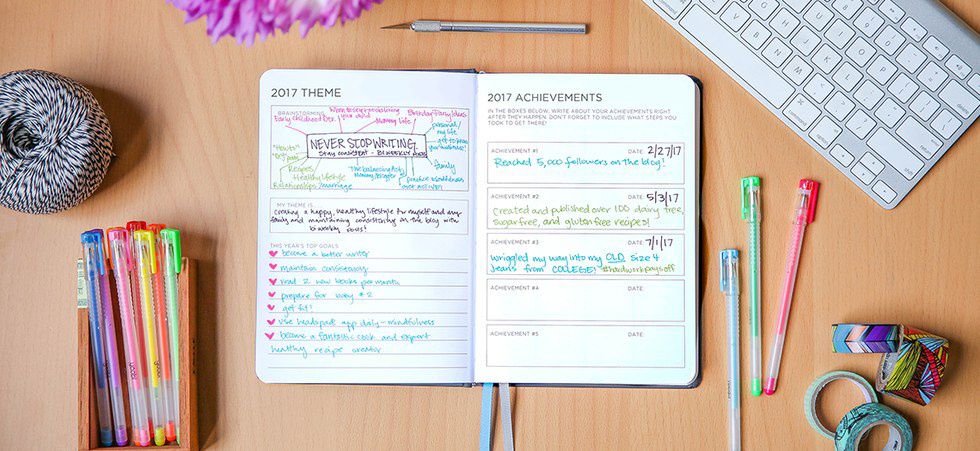 2017 THEME
BRAINSTORMING
Early childhood Dev.
your child
Mommy life
Birthday Party Ideas
personal/
my life
get to know
NEVER STOP WRITING.
Stay consistent - BI WEEKLY
"How to's"
Recipes
Healthy lifestyle
Relationships/marriage
The balancing Act:
Mommy/blogger
practice mindfulness
family
MY THEME IS...
creating a happy, healthy lifestyle for myself and my
family and maintaining consistency on the blog with
biweekly posts!
THIS YEAR'S TOP GOALS
become a better writer
maintain consistency
read 2 new books per month
prepare for baby #2
get fit!
use headspace app daily - mindfulness
become a fantastic cook and expert
healthy recipe creator
2017 ACHIEVEMENTS
IN THE BOXES BELOW, WRITE ABOUT YOUR ACHIEVEMENTS RIGHT
AFTER THEY HAPPEN. DON'T FORGET TO INCLUDE WHAT STEPS YOU
TOOK TO GET THERE!
ACHIEVEMENT #1 DATE: 2/27/17
Reached 5,000 followers on the blog!
ACHIEVEMENT #2 DATE: 5/3/17
Created and published over 100 dairy free,
sugar free, and gluten free recipes!
ACHIEVEMENT #3 DATE: 7/1/17
wriggled my way into my OLD size 4
jeans from COLLEGE! #hardworkpaysoff
ACHIEVEMENT #4 DATE:
ACHIEVEMENT #5 DATE: